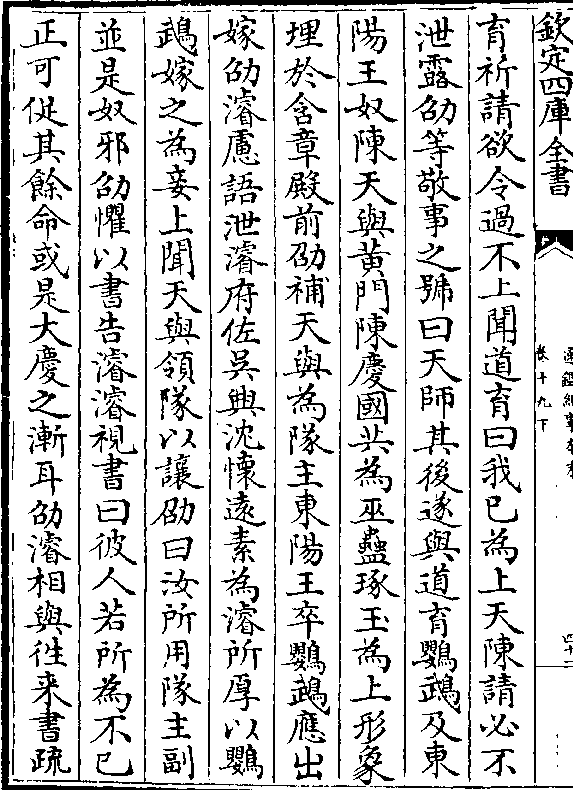 欽定四庫全書
卷十九下
育祈請欲令過不上聞道育曰我已為上天陳請必不
泄露劭等敬事之號曰天師其後遂與道育鸚鵡及東
陽王奴陳天與黄門陳慶國共為巫蠱琢玉為上形象
埋於含章殿前劭補天與為隊主東陽王卒鸚鵡應出
嫁劭濬慮語泄濬府佐吳興沈懷逺素為濬所厚以鸚
鵡嫁之為妾上聞天與領隊以讓劭曰汝所用隊主副
並是奴邪劭懼以書告濬濬視書曰彼人若所為不已
正可促其餘命或是大慶之漸耳劭濬相與徃來書疏